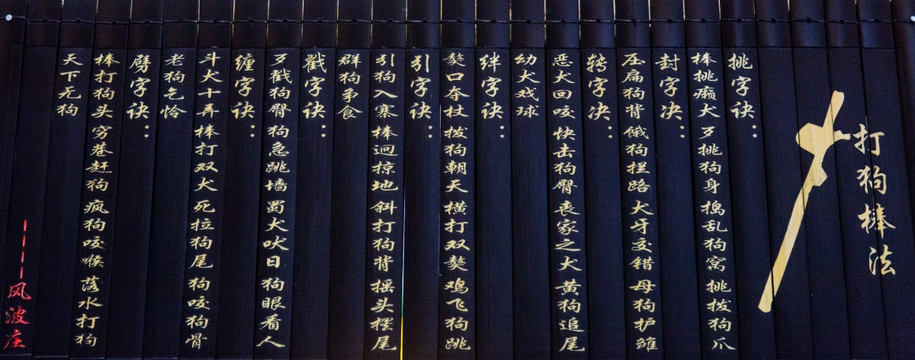 打狗棒法
挑字诀：
棒挑癞犬歹挑狗身捣乱狗窝挑拨狗爪
封字诀：
压扁狗背饿狗拦路犬牙交错母狗护雏
转字诀：
恶犬回咬快击狗臀丧家之犬黄狗追尾
幼犬戏球
绊字诀：
獒口夺杖拨狗朝天横打双獒鸡飞狗跳
引字诀：
引狗入寨棒迴掠地斜打狗背摇头摆尾
群狗争食
戳字诀：
歹戳狗臀狗急跳墙蜀犬吠日狗眼看人
缠字诀：
斗犬十弄棒打双犬死拉狗尾狗咬狗骨
老狗乞怜
劈字诀：
棒打狗头穷巷赶狗疯狗咬喉落水打狗
天下无狗
----风波庄